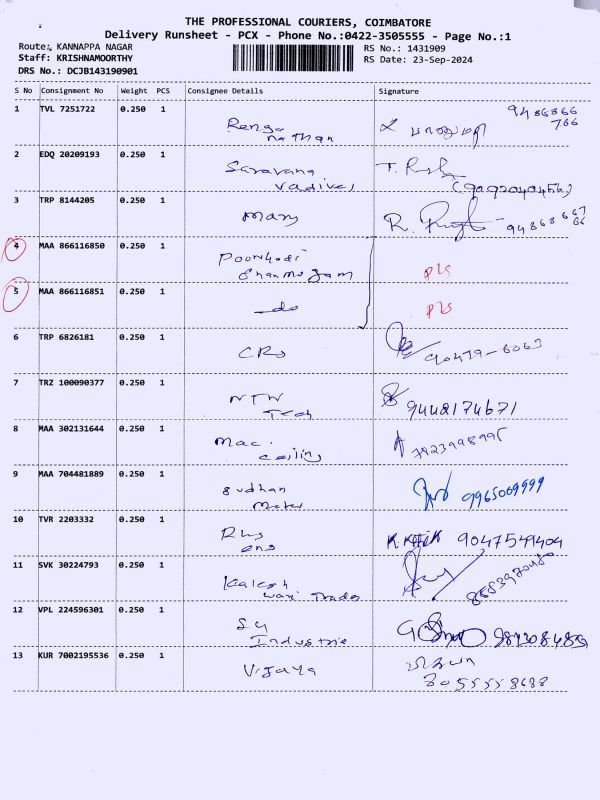 THE PROFESSIONAL COURIERS, COIMBATORE
Delivery Runsheet - PCX - Phone No.:0422-3505555 - Page No.:1
Route: KANNAPPA NAGAR
RS No.: 1431909
Staff: KRISHNAMOORTHY
RS Date: 23-Sep-2024
DRS No.: DCJB143190901
S No Consignment No Weight PCS Consignee Details Signature
1 TVL 7251722 0.250 1
Renga
nathan
9486866
766
2 EDQ 20209193 0.250 1
Saravana
Vadivel
3 TRP 8144205 0.250 1
Mary
4 MAA 866116850 0.250 1
Poonkodi
Shanmugam
PLS
5 MAA 866116851 0.250 1
do
PLS
6 TRP 6826181 0.250 1
CRS
90479-6063
7 TRZ 100090377 0.250 1
NTW
Tech
9442174671
8 MAA 302131644 0.250 1
Mac.
Ceiling
9 MAA 704481889 0.250 1
Sudhan
Motor
9965069999
10 TVR 2203332 0.250 1
9047549404
11 SVK 30224793 0.250 1
12 VPL 224596301 0.250 1
Industrie
13 KUR 7002195536 0.250 1
Vijaya